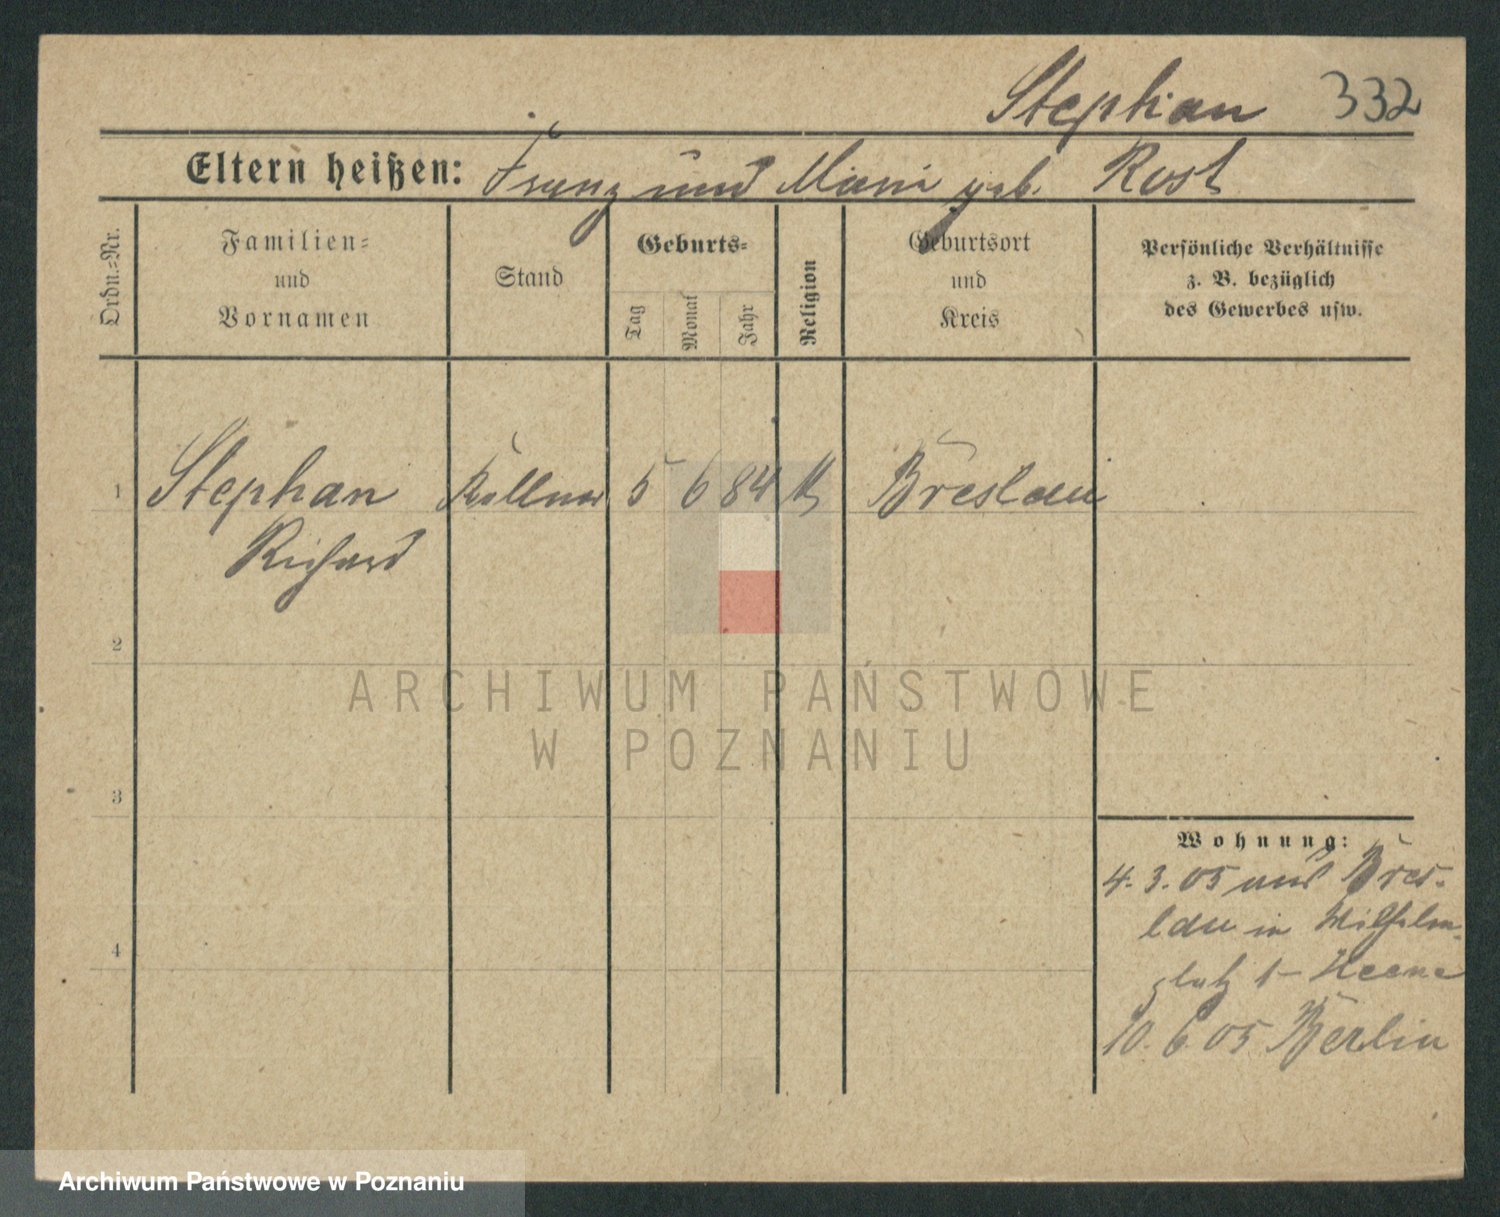 Stephan 332
Eltern heißen: Franz und Maria geb. Rost
Ordn.=Nr.
Familien=
und
Vornamen
Stand
Geburts=
Tag
Monat
Jahr
Religion
Geburtsort
und
Kreis
Persönliche Verhältnisse
z. B. bezüglich
des Gewerbes usw.
1 Stephan Kellner 5 6 84 k Breslau
Richard
2
3
4
Wohnung:
4. 3. 05 aus Bres-
lau in Wilhelm-
platz
10. 6. 05 Berlin
ARCHIWUM PAŃSTWOWE
W POZNANIU
Archiwum Państwowe w Poznaniu